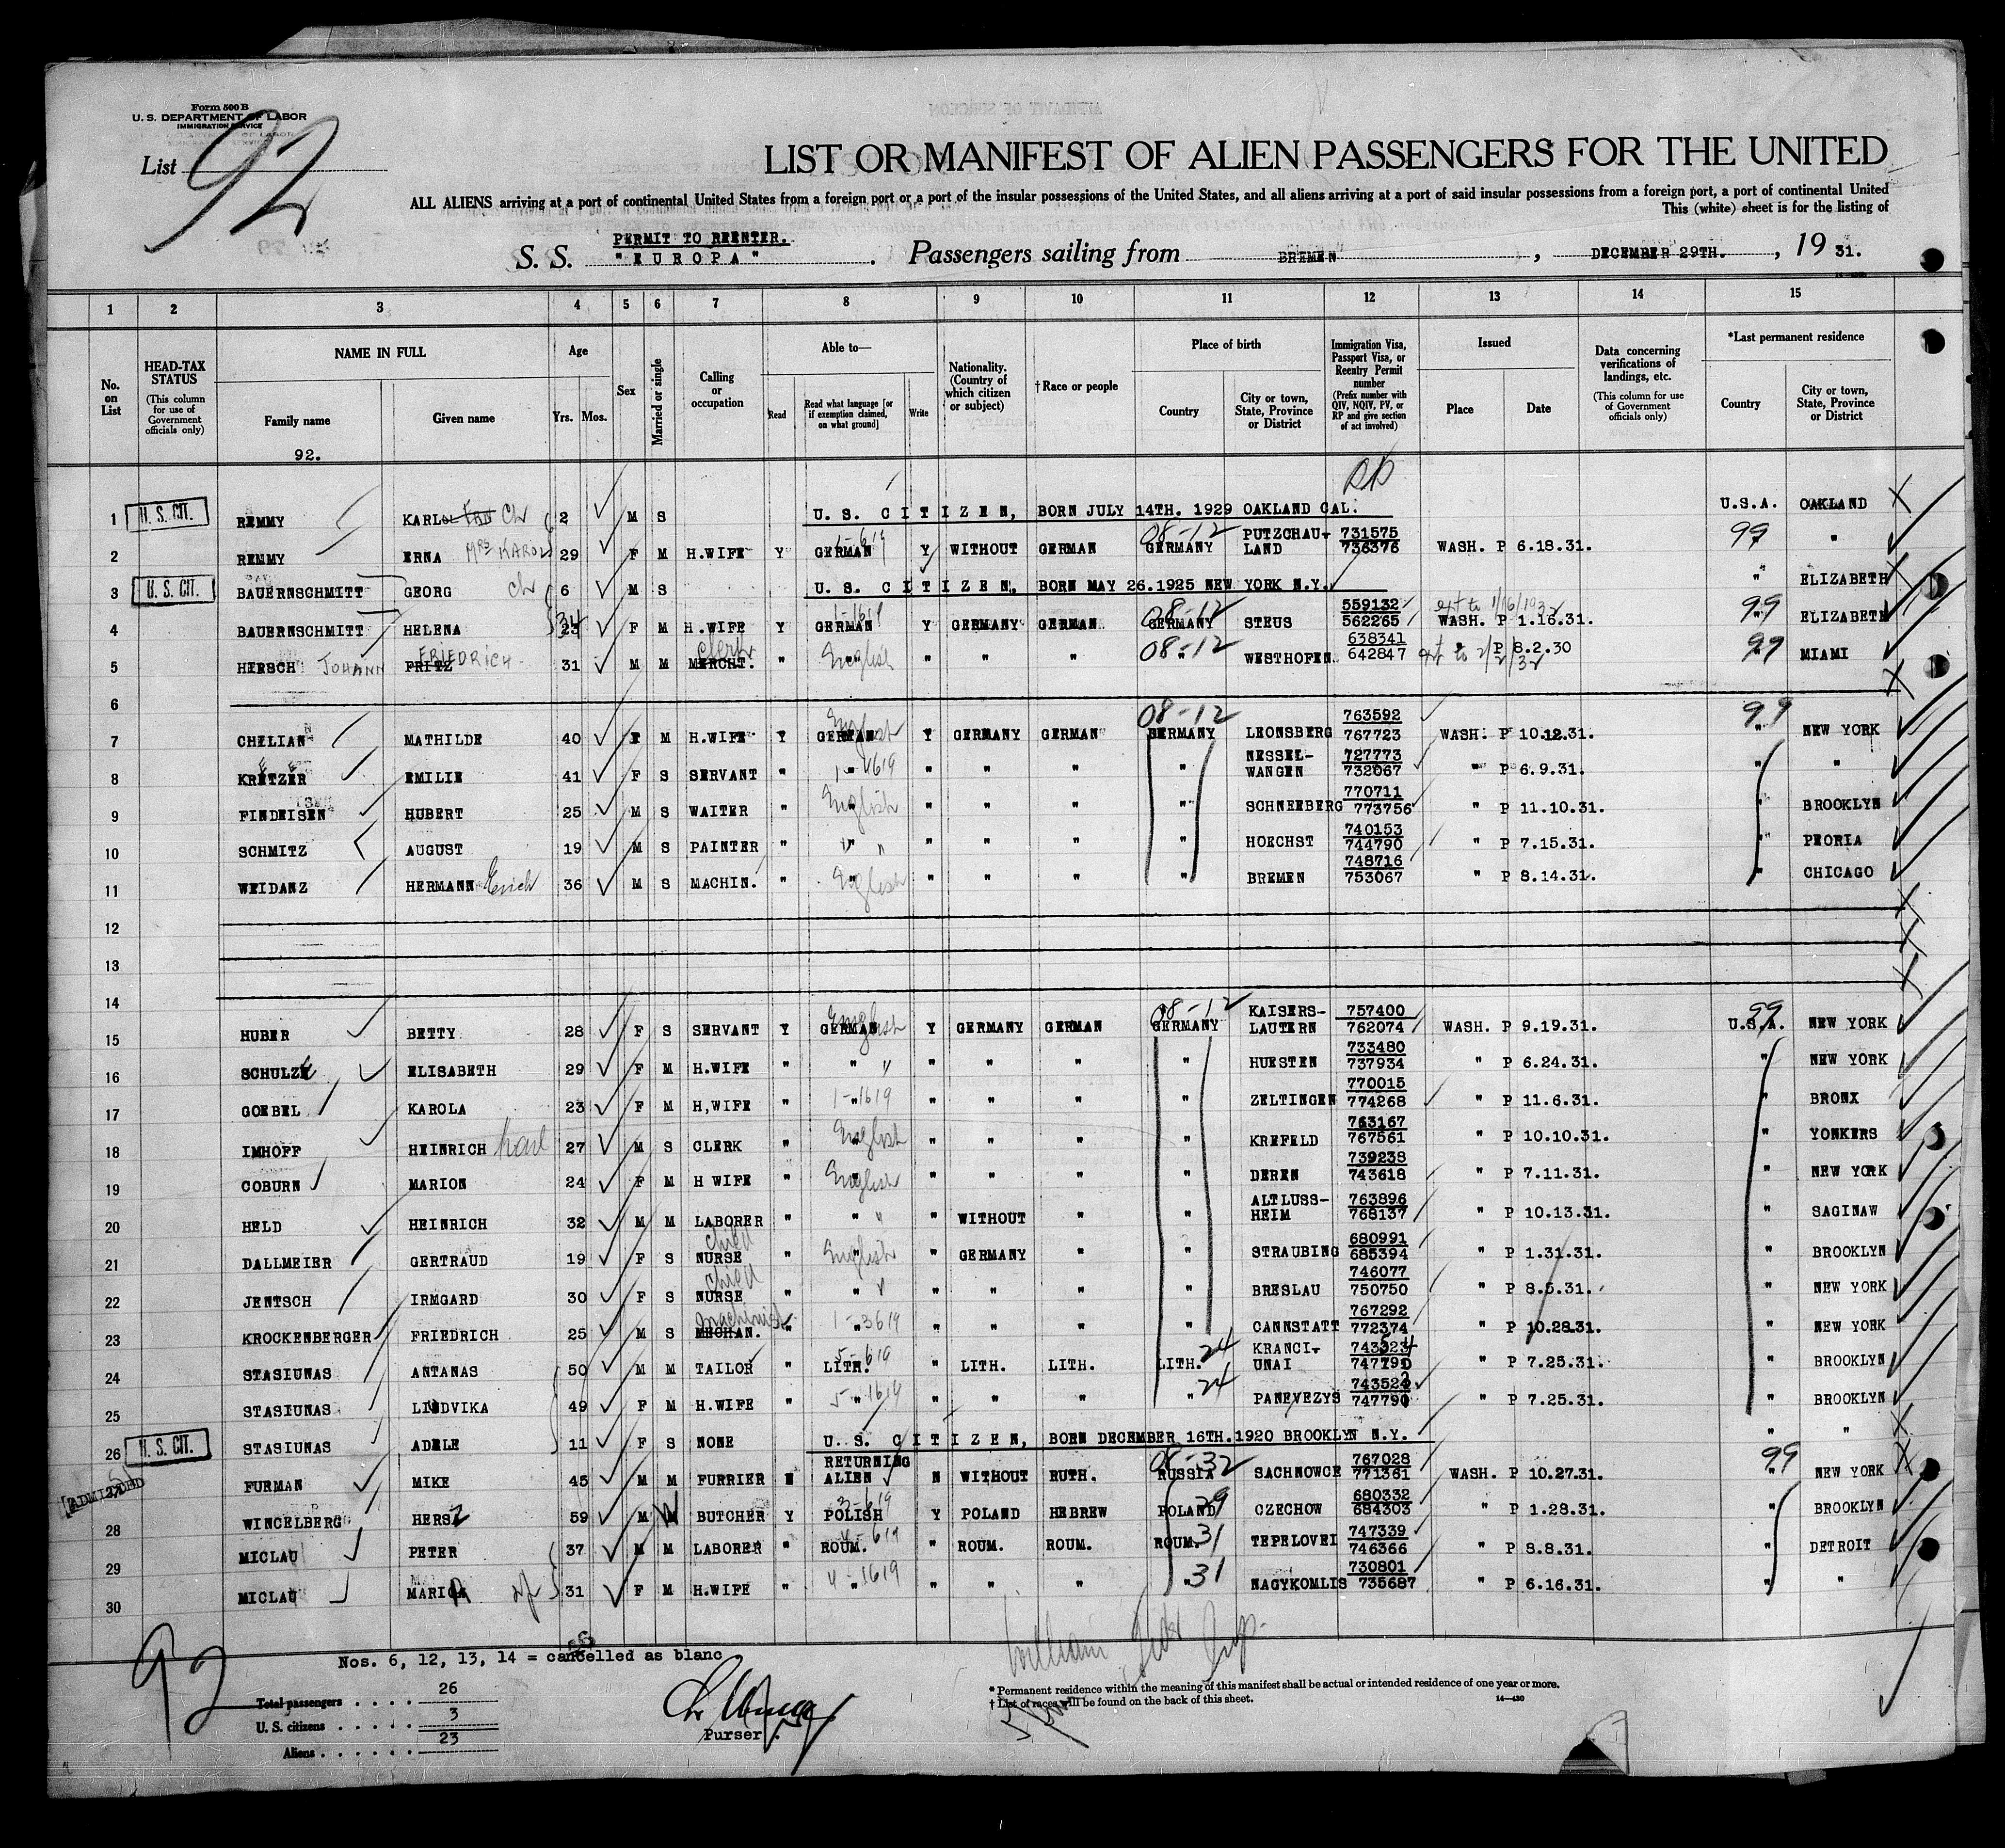 Form 500 B
U. S. DEPARTMENT OF LABOR
IMMIGRATION SERVICE
List 92
LIST OR MANIFEST OF ALIEN PASSENGERS FOR THE UNITED
ALL ALIENS arriving at a port of continental United States from a foreign port or a port of the insular possessions of the United States, and all aliens arriving at a port of said insular possessions from a foreign port, a port of continental United
This (white) sheet is for the listing of
PERMIT TO REENTER.
S. S. "EUROPA". Passengers sailing from BREMEN, DECEMBER 29TH., 19 31.
1 2 3 4 5 6 7 8 9 10 11 12 13 14 15
No. on List
HEAD-TAX STATUS (This column for use of Government officials only)
NAME IN FULL Family name Given name
Age Yrs. Mos.
Sex
Married or single
Calling or occupation
Able to— Read Read what language [or if exemption claimed, on what ground] Write
Nationality. (Country of which citizen or subject)
†Race or people
Place of birth Country City or town, State, Province or District
Immigration Visa, Passport Visa, or Reentry Permit number (Prefix number with QIV, NQIV, PV, or RP and give section of act involved)
Issued Place Date
Data concerning verifications of landings, etc. (This column for use of Government officials only)
*Last permanent residence Country City or town, State, Province or District
92.
RP
1 U. S. CIT. REMMY KARL Ch 2 M S U. S. CITIZEN, BORN JULY 14TH. 1929 OAKLAND CAL. U.S.A. OAKLAND
2 REMMY ERNA MRS KAROL 29 F M H.WIFE Y GERMAN 1-619 Y WITHOUT GERMAN 08-12 GERMANY PUTZCHAU-LAND 731575 736376 WASH. P 6.18.31. 99 "
3 U. S. CIT. BAUERNSCHMITT GEORG ch 6 M S U. S. CITIZEN, BORN MAY 26.1925 NEW YORK N.Y. " ELIZABETH
4 BAUERNSCHMITT HELENA 34 F M H.WIFE Y GERMAN 1-1619 Y GERMANY GERMAN 08-12 GERMANY STEUS 559132 562265 ext to 1/16/1932 WASH. P 1.16.31. 99 ELIZABETH
5 HIRSCH JOHANN FRITZ FRIEDRICH 31 M M MERCHT. Clerk " English " " " 08-12 " WESTHOFEN. 638341 642847 ext to 2/2/32 P 8.2.30 99 MIAMI
6
7 CHELIAN MATHILDE 40 F M H.WIFE Y GERMAN English Y GERMANY GERMAN 08-12 GERMANY LEONSBERG 763592 767723 WASH. P 10.12.31. 99 NEW YORK
8 KRETZER EMILIE 41 F S SERVANT " 1-1619 " " " " NESSEL-WANGEN 727773 732067 " P 6.9.31. " "
9 FINDEISEN HUBERT 25 M S WAITER " English " " " " SCHNEEBERG 770711 773756 " P 11.10.31. BROOKLYN
10 SCHMITZ AUGUST 19 M S PAINTER " " " " " " HOECHST 740153 744790 " P 7.15.31. " PEORIA
11 WEIDANZ HERMANN Erich 36 M S MACHIN. " English " " " " BREMEN 748716 753067 " P 8.14.31. " CHICAGO
12
13
14
15 HUBER BETTY 28 F S SERVANT Y GERMAN English Y GERMANY GERMAN 08-12 GERMANY KAISERS-LAUTERN 757400 762074 WASH. P 9.19.31. 99 U.S.A. NEW YORK
16 SCHULZE ELISABETH 29 F M H.WIFE " " " " " " HUESTEN 733480 737934 " P 6.24.31. " NEW YORK
17 GOEBEL KAROLA 23 F M H,WIFE " 1-1619 " " " " ZELTINGEN 770015 774268 " P 11.6.31. " BRONX
18 IMHOFF HEINRICH Karl 27 M S CLERK " English " " " " KREFELD 763167 767561 " P 10.10.31. " YONKERS
19 COBURN MARION 24 F M H WIFE " English " " " " DEREN 739238 743618 " P 7.11.31. " NEW YORK
20 HELD HEINRICH 32 M M LABORER " " " WITHOUT " " ALTLUSS-HEIM 763896 768137 " P 10.13.31. " SAGINAW
21 DALLMEIER GERTRAUD 19 F S child NURSE " English " GERMANY " " STRAUBING 680991 685394 " P 1.31.31. " BROOKLYN
22 JENTSCH IRMGARD 30 F S child NURSE " " " " " " BRESLAU 746077 750750 " P 8.5.31. " NEW YORK
23 KROCKENBERGER FRIEDRICH 25 M S MECHAN. machinist " 1-3619 " " " " CANNSTATT 767292 772374 " P 10.28.31. " NEW YORK
24 STASIUNAS ANTANAS 50 M M TAILOR " LITH. 5-619 " LITH. LITH. LITH. 24 KRANCI-UNAI " P 7.25.31. " BROOKLYN
25 STASIUNAS LIUDVIKA 49 F M H.WIFE " 5-1619 " " " " 24 PANEVEZYS " P 7.25.31. " BROOKLYN
26 U. S. CIT. STASIUNAS ADELE 11 F S NONE U. S. CITIZEN, BORN DECEMBER 16TH.1920 BROOKLYN N.Y. " "
ADMITTED FURMAN MIKE 45 M M FURRIER N RETURNING ALIEN N WITHOUT RUTH. 08-32 RUSSIA SACHNOWCE 767028 771361 WASH. P 10.27.31. 99 NEW YORK
28 WINCELBERG HERSZ 59 M W BUTCHER Y POLISH 3-619 Y POLAND HEBREW POLAND 29 CZECHOW 680332 684303 " P 1.28.31. " BROOKLYN
29 MICLAU PETER 37 M M LABORER " ROUM. 4-619 " ROUM. ROUM. ROUM. 31 TEPELOVEI 747339 746366 " P 8.8.31. " DETROIT
30 MICLAU MARIA wf 31 F M H.WIFE " 4-1619 " " " " 31 NAGYKOMLIS 730801 735687 " P 6.16.31. " "
Nos. 6, 12, 13, 14 = cancelled as blanc
92
Total passengers . . . . 26
U. S. citizens . . . . . 3
Aliens . . . . . . 23
Purser.
* Permanent residence within the meaning of this manifest shall be actual or intended residence of one year or more.
† List of races will be found on the back of this sheet.
14—430